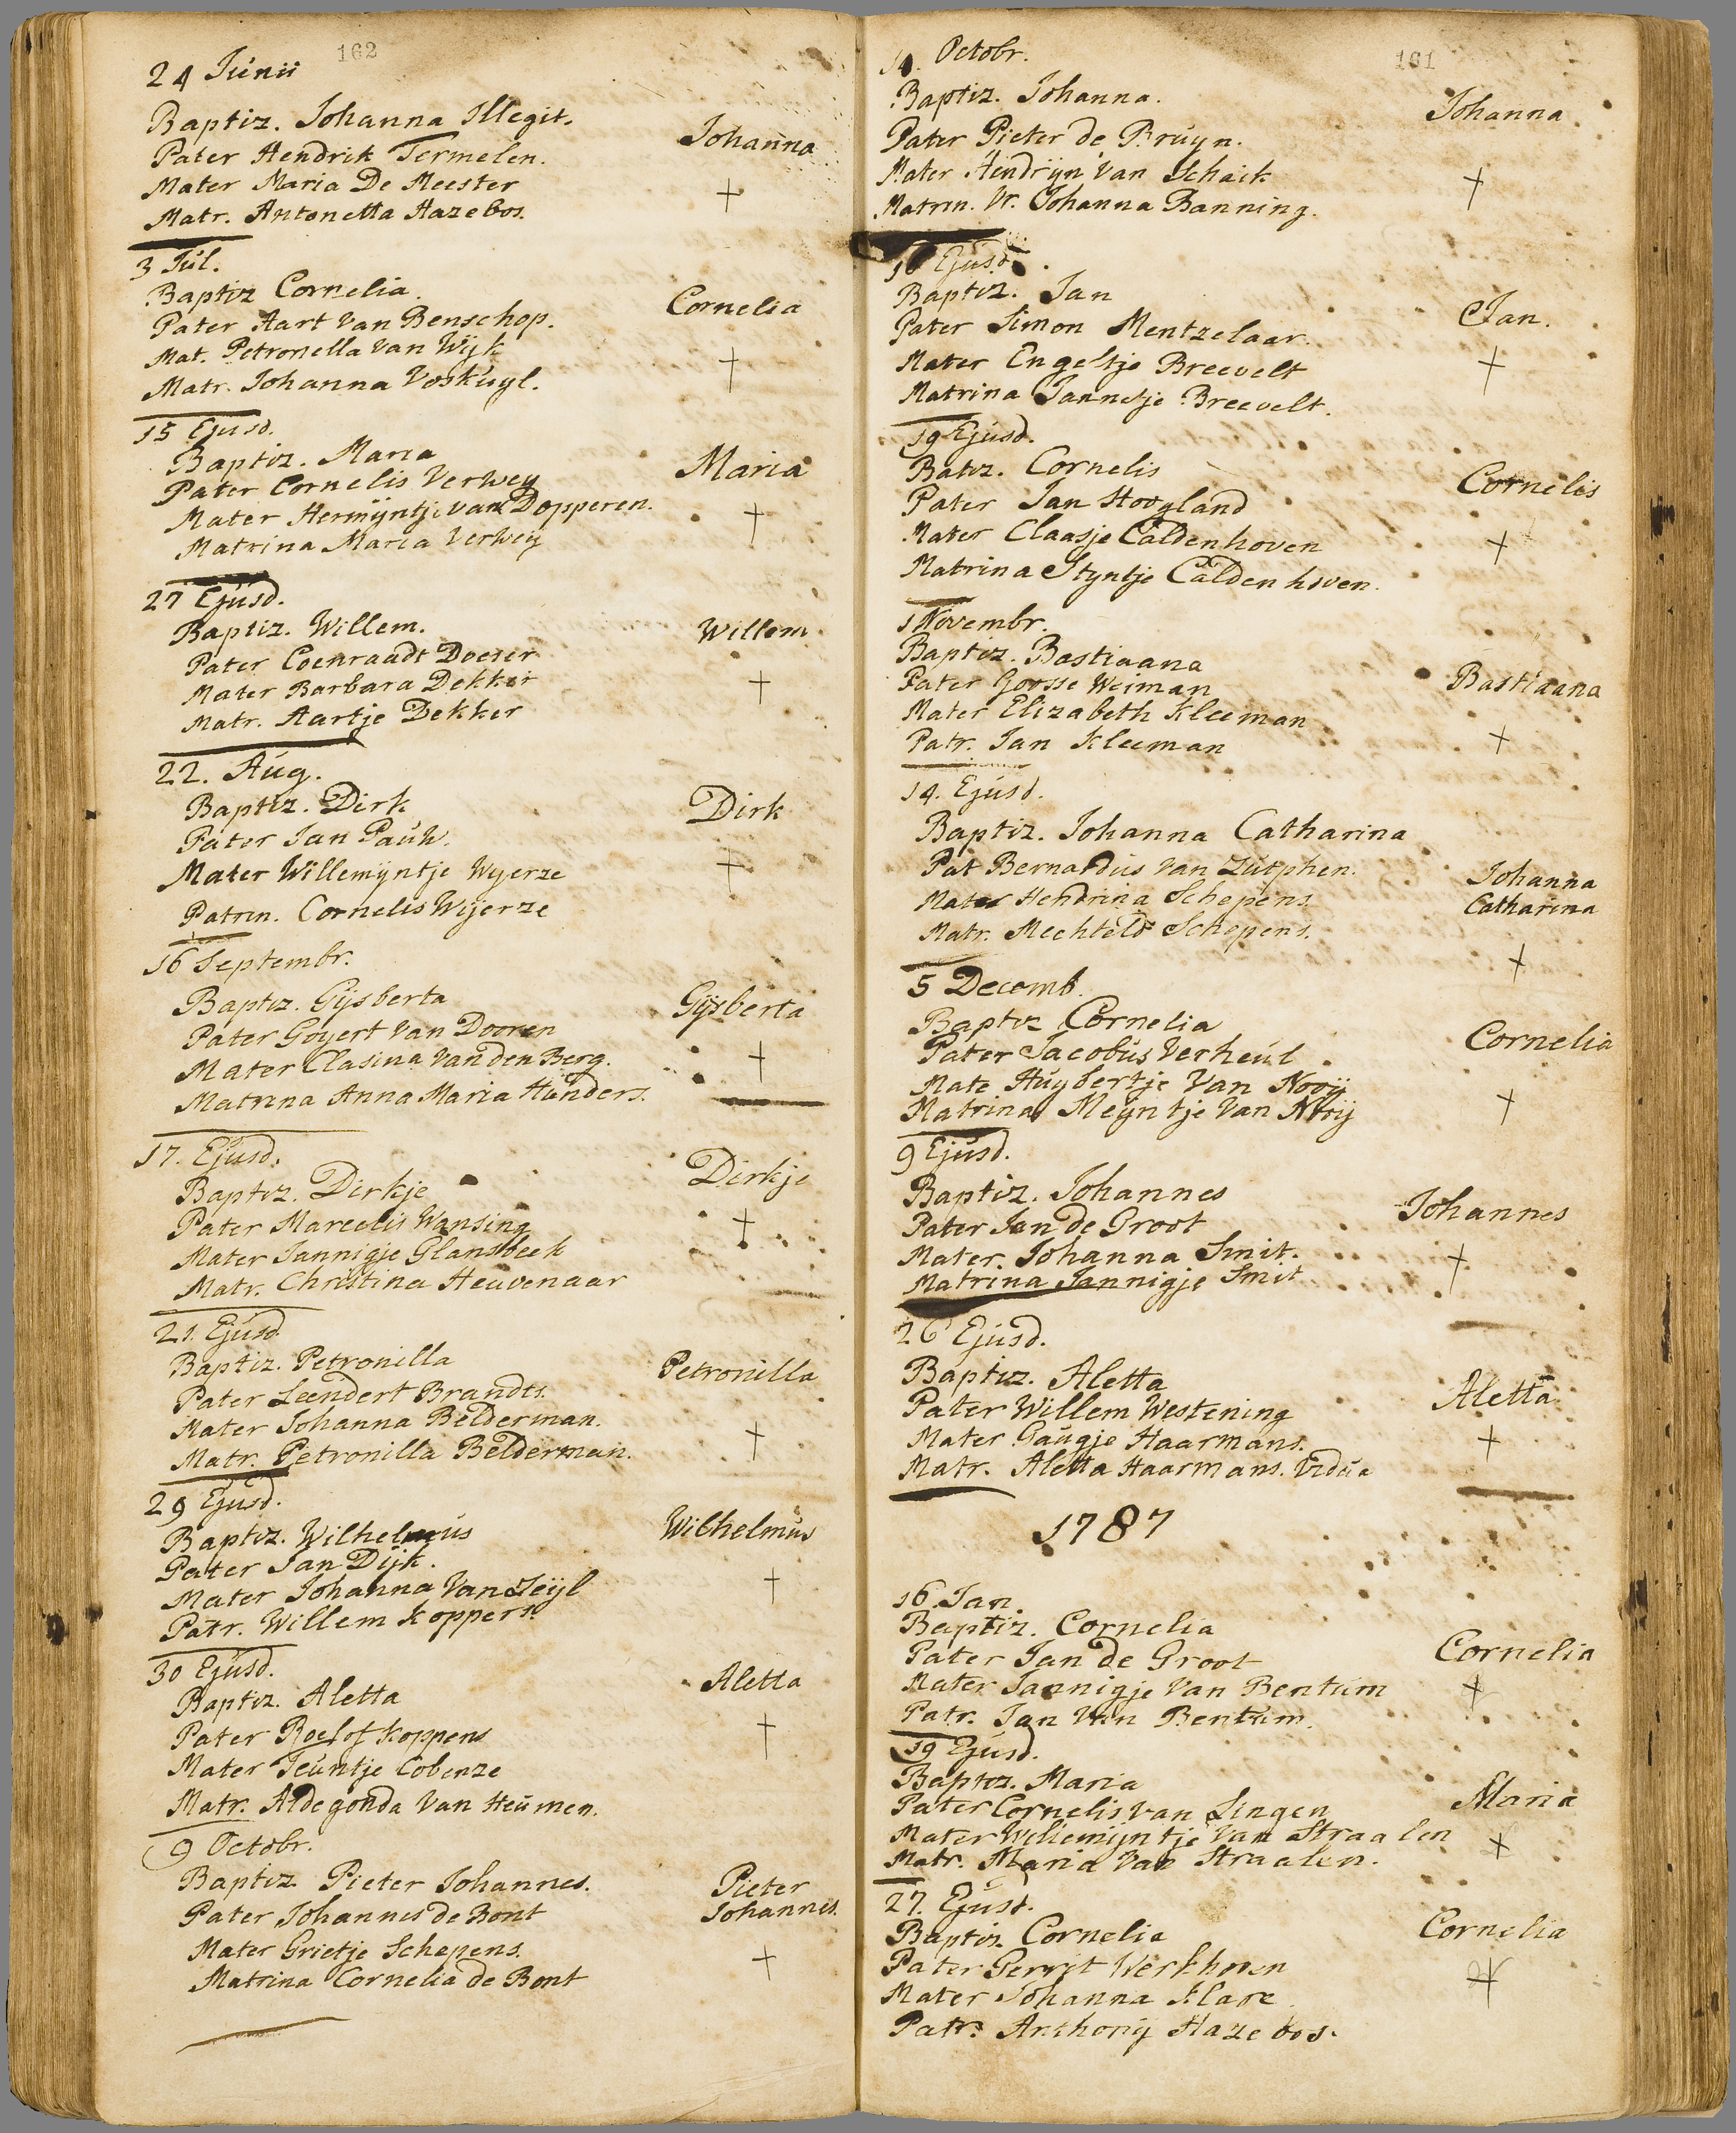 162
24 Junii
Baptiz. Johanna Illegit.
Pater Hendrik Termelen.
Mater Maria De Meester
Matr. Antonetta Hazebos.
Johanna
3 Jul.
Baptiz Cornelia
Pater Aart Van Benschop.
Mat. Petronella Van Wijk
Matr. Johanna Voskuyl.
Cornelia
15 Ejusd.
Baptiz. Maria
Pater Cornelis Verwey
Mater Hermijntje van Dopperen.
Matrina Maria Verwey
Maria
27 Ejusd.
Baptiz. Willem.
Pater Coenraadt Doeser
Mater Barbara Dekker
Matr. Aartje Dekker
Willem
22. Aug.
Baptiz. Dirk
Pater Jan
Mater Willemijntje Wyerze
Patrin. Cornelis Wijerze
Dirk
16 Septembr.
Baptiz. Gijsberta
Pater Goyert Van Dooren
Mater Clasina Van den Berg.
Matrina Anna Maria Hunders.
Gijsberta
17. Ejusd.
Baptiz. Dirkje
Pater Marcelis Wansing
Mater Jannigje Glansbeek
Matr. Christina Heuvenaar
Dirkje
21. Ejusd
Baptiz. Petronilla
Pater Leendert Brandts.
Mater Johanna Belderman.
Matr. Petronilla Belderman.
Petronilla
29 Ejusd.
Baptiz. Wilhelmus
Pater Jan Dijk.
Mater Johanna Van Zeijl
Patr. Willem Koppers.
Wilhelmus
30 Ejusd.
Baptiz. Aletta
Pater Roelof Koppens
Mater Teuntje Cobenze
Matr. Aldegonda Van Heumen.
Aletta
9 Octobr.
Baptiz Pieter Johannes.
Pater Johannes de Bont
Mater Grietje Schepens.
Matrina Cornelia de Bont
Pieter
Johannes.
161
10. Octobr.
Baptiz. Johanna.
Pater Pieter de Bruyn.
Mater Hendrijn Van Schaik
Matrin. Vr. Johanna Banning.
Johanna
16 Ejusd.
Baptiz. Jan
Pater Simon Mentzelaar.
Mater Engeltje Breevelt
Matrina Jannetje Breevelt.
Jan.
19 Ejusd.
Batiz. Cornelis
Pater Jan Hoogland
Mater Claasje Caldenhoven
Matrina Styntje Caldenhoven.
Cornelis
1 Novembr.
Baptiz. Bastiaana
Pater Goosse Weiman
Mater Elizabeth Kleeman
Patr. Jan Kleeman
Bastiaana
14. Ejusd.
Baptiz. Johanna Catharina
Pat Bernardus Van Zutphen.
Mater Hendrina Schepens
Matr. Mechteld Schepens.
Johanna
Catharina
5 Decemb.
Baptiz Cornelia
Pater Jacobus Verheul
Mate Huybertje Van Nooij
Matrina Meyntje Van Nooij
Cornelia
9 Ejusd.
Baptiz. Johannes
Pater Jan de Groot
Mater Johanna Smit.
Matrina Jannigje Smit
Johannes
26 Ejusd.
Baptiz. Aletta
Pater Willem Westening
Mater Haarmans.
Matr. Aletta Haarmans. Vidua
Aletta
1787
16 Jan.
Baptiz. Cornelia
Pater Jan de Groot
Mater Jannigje Van Bentum
Patr. Jan Van Bentum.
Cornelia
19 Ejusd.
Baptiz. Maria
Pater Cornelis van Lingen
Mater Willemijntje Van Straalen
Matr. Maria Van Straalen.
Maria
27. Ejusd.
Baptiz Cornelia
Pater Gerrit Werkhoven
Mater Johanna
Patr. Anthonij Hazebos.
Cornelia